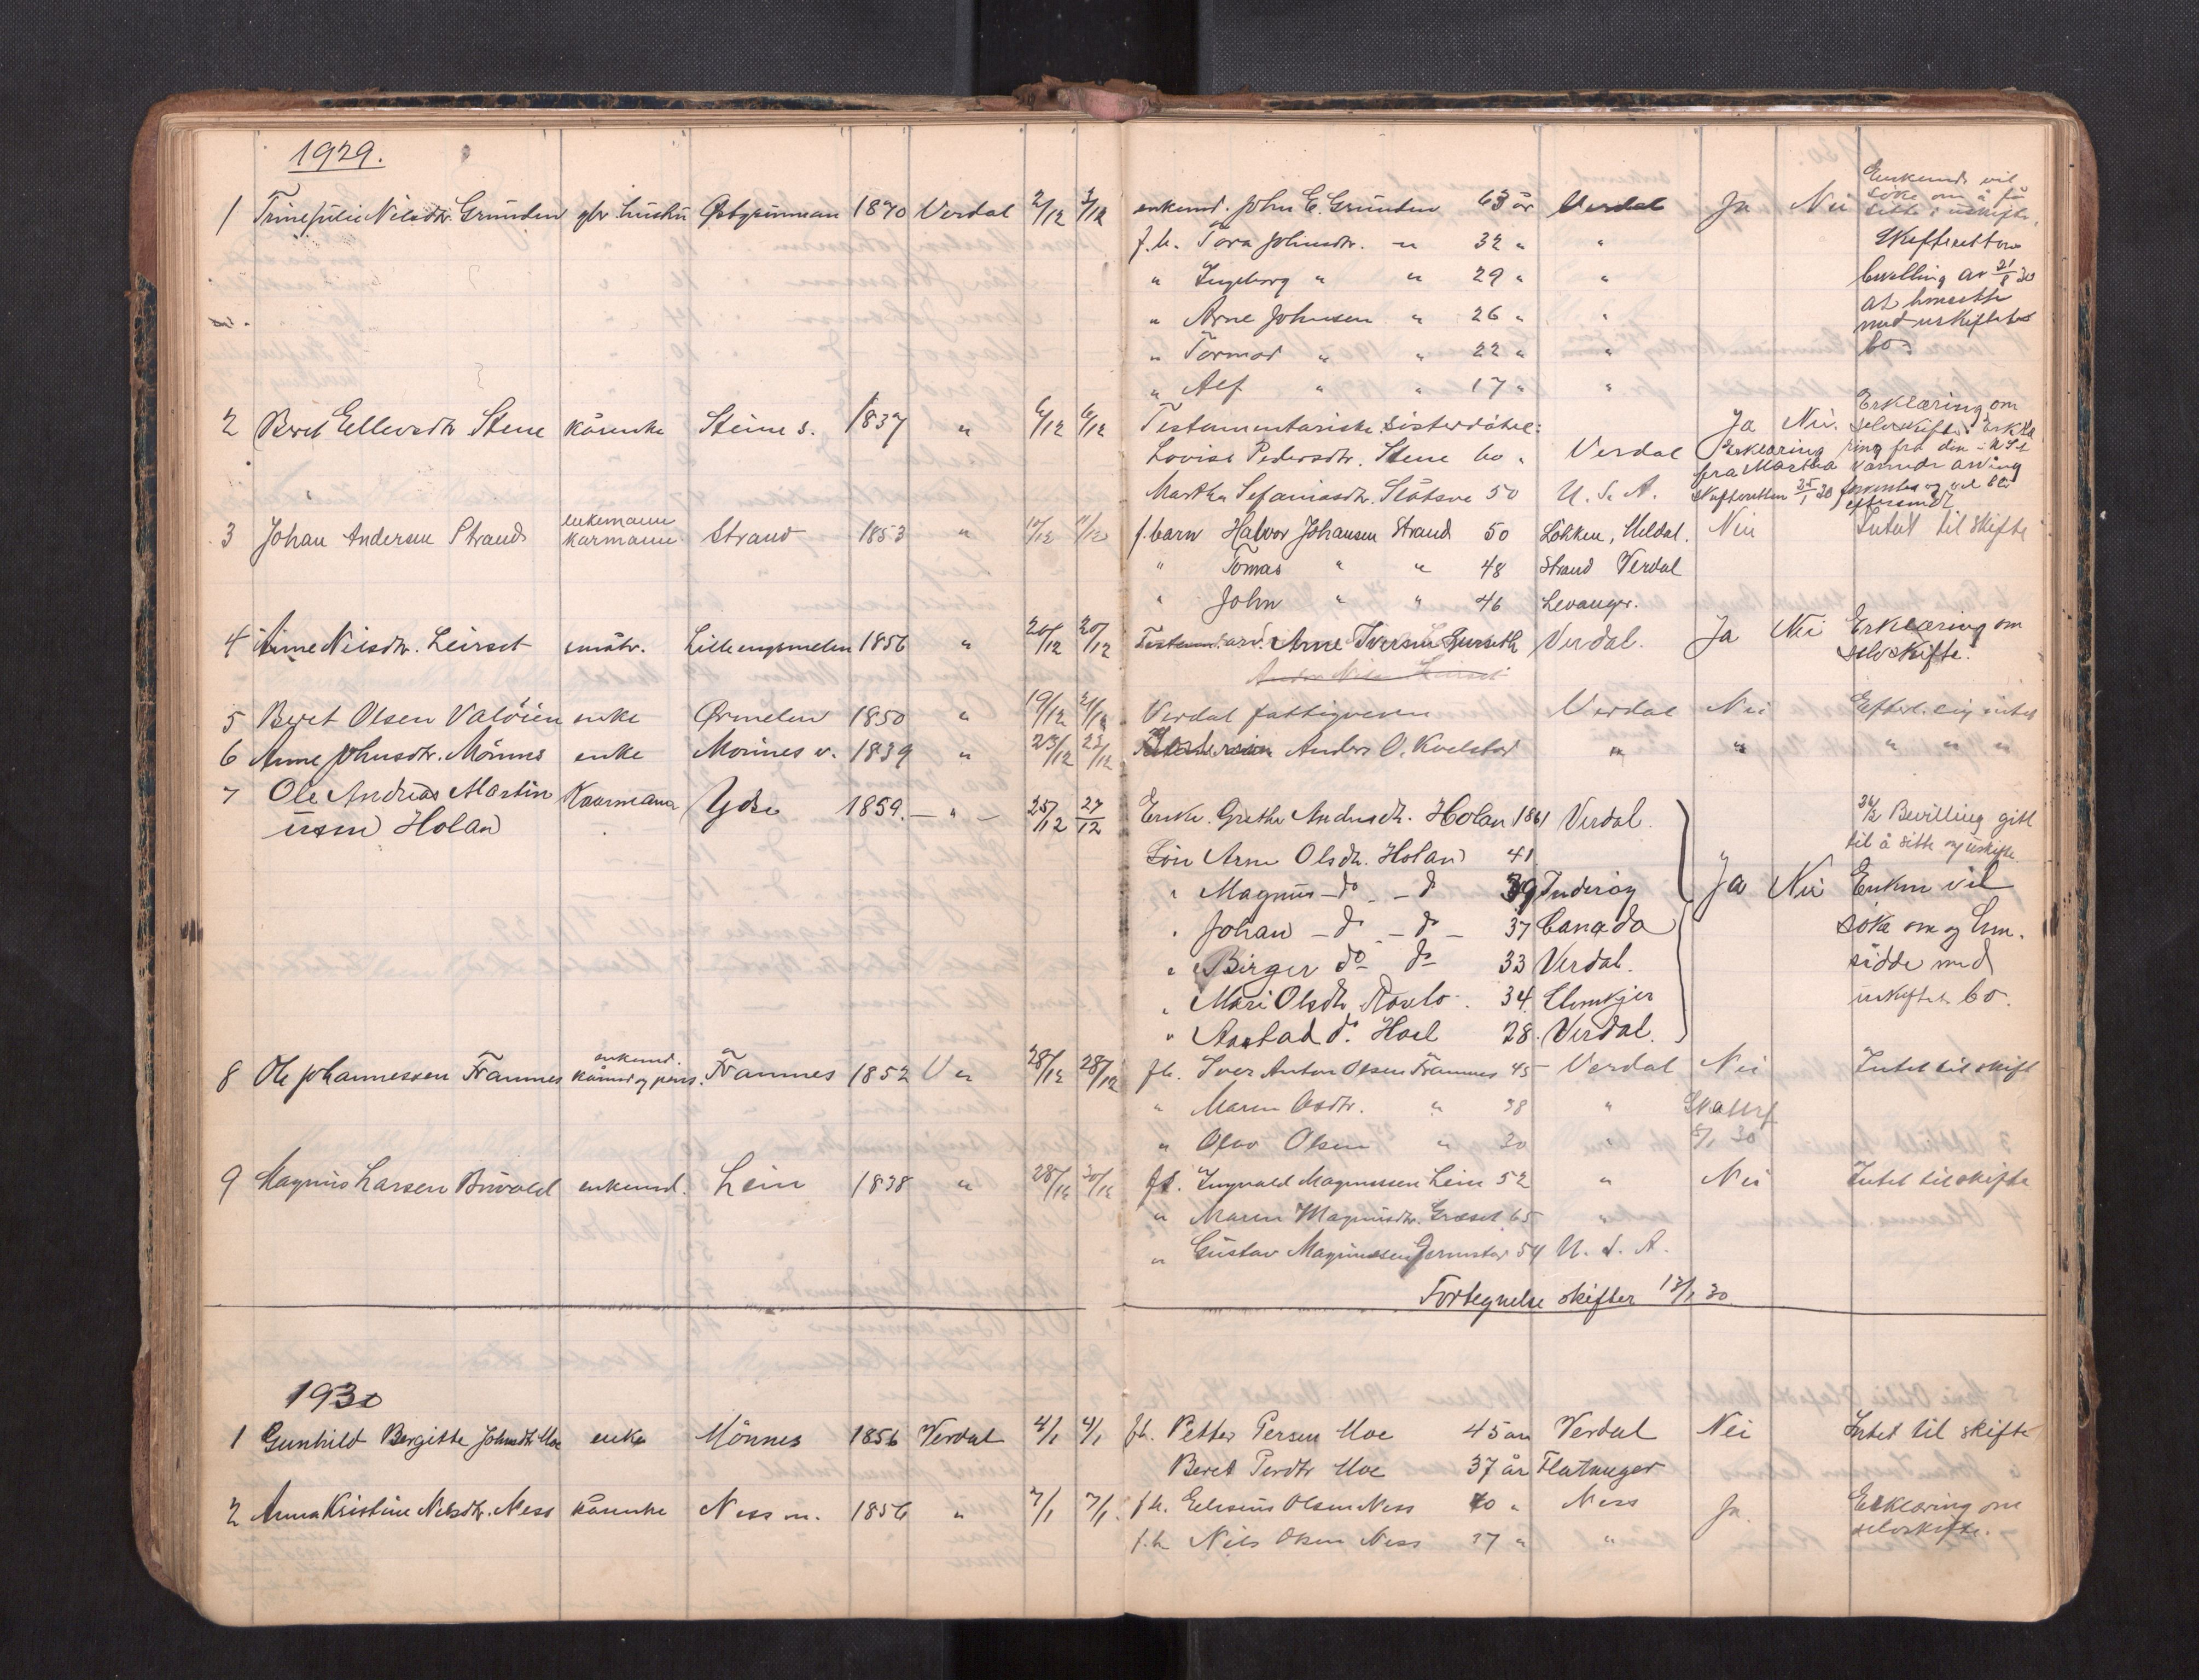 1929.
1 Trine Julie Nilsdtr. Grunden gbr hustru Østgrunnan 1870 Verdal 2/12 3/12 enkemd. John E. Grunden 63 år Verdal Ja Nei Enkemd. vil
søke om å få
sitte i uskifte.
f.b. Tora Johnsdtr. " 32 " " Skifteretten
" Ingeborg " " 29 " " bevilling av 21/1 30
" Arne Johnsen " 26 " " at hensitte
" Tormod " " 22 " " med uskiftet
" Alf " " 17 " " bo.
2 Beret Ellevsdtr Stene kårenke Steine s. 1837 " 6/12 6/12 Testamentariske søsterdøtre: Ja Nei. Erklæring om
selvskifte.
Lovise Pedersdtr. Stene 60 " Verdal Erklæring fra Martha
Martha Sefaniasdtr. 50 U. S. A. Skifteretten 25/1 30
3 Johan Andersen Strand enkemann
karmann Strand 1853 " f. barn Halvor Johansen Strand 50 Løkken, Meldal. Nei Intet til skifte
" Tomas " " 48 Strand Verdal
" John " " 46 Levanger.
4 Anne Nilsdtr. Leirset småbr. 1856 " 20/12 20/12 Testam. arv. Arne Iversen Verdal. Ja Nei Erklæring om
selvskifte.
5 Beret Olsen Valøien enke Ørmelen 1850 " 19/12 21/12 Verdal fattigvesen Verdal Nei Efterl. sig intet
6 Anne Johnsdtr. Mönnes enke Mönnes v. 1839 " 23/12 23/12 Anders O. Kvelstad " " " " "
7 Ole Andreas Martin
usen Holan Kaarmann Ydse 1859. — " — 25/12 27/12 Enke. Grethe Andersdtr. Holan 1861 Verdal. 26/2 Bevilling gitt
til å sitte i uskifte
Søn Arne Olsdtr. Holan 41
" Magnus — do — d 39 Inderøy Ja Nei Enken vil
" Johan — d — d — 37 Canada søke om og hen.
" Birger do do 33 Verdal. sidde med
" Mari Olsdtr. 34. Stenkjer uskiftet bo.
" d. Hoel 28. Verdal.
8 Ole Johannessen Trannes enkemd.
kårmd og pens. Trannes 1852 V " 28/12 28/12 fb. Iver Anton Olsen Trannes 45 Verdal Nei Intet til skift
" Maren Olsdtr. " 38 "
" Olav Olsen " 30 " 8/1 30
9 Magnus Larsen Buvold enkemd. Lein 1838 " 28/12 30/12 fb. Ingvald Magnussen Lein 52 " Nei Intet til skifte
" Maren Magnusdtr. Græset 65 "
" Gustav Magnussen 54 U. S. A.
Fortegnelse skifter 13/1 30.
1930
1 Gunhild Bergitte Johnsdtr Moe enke Mönnes 1856 Verdal 4/1 4/1 fb. Petter Persen Moe 45 år Verdal Nei Intet til skifte
Beret Persdtr Moe 37 år Flatanger
2 Anna Kristine Nilsdtr. Ness kårenke Ness m. 1856 " 7/1 7/1. f.b. Eliseus Olsen Ness 40 " Ness Ja. Erklæring om
selvskifte.
f.b Nils Olsen Ness 37 " "